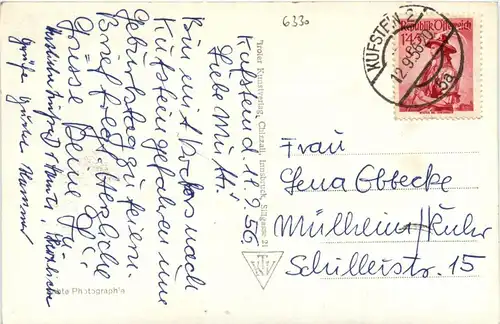 6330
Kufstein d. 11.9.56
Liebe Mutti!
Bin mit Doktors nach
Kufstein gefahren um
Geburtstag zu feiern.
Brief folgt. Herzliche
Grüsse Deine
Herzliche
Grüße
Tiroler Kunstverlag Chizzali, Innsbruck, Sillgasse 21
Echte Photographie
KUFSTEIN 2
12.9.56
5a
Republik Österreich
1.45 S
Frau
Lena Obbecke
Mülheim/Ruhr
Schillerstr. 15